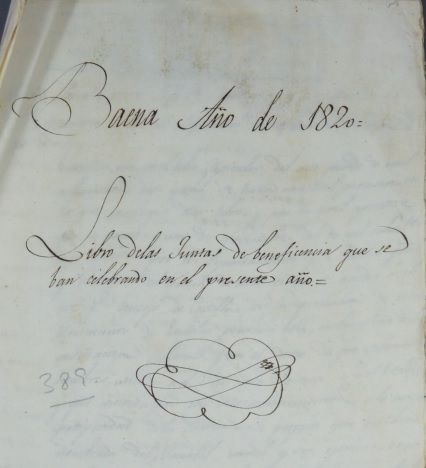 Baena Año de 1820=
Libro delas Juntas de beneficencia que se
ban celebrando en el presente año.=
389.